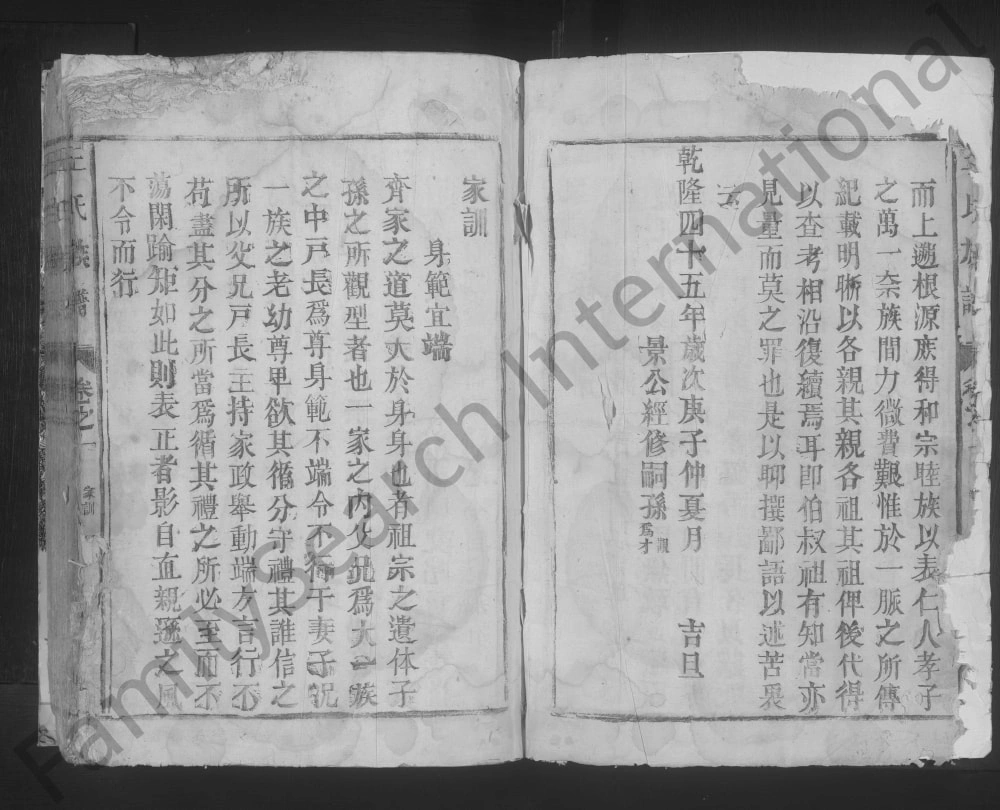 而上遡根源庻得和宗睦族以表仁人孝子
之萬一奈族間力微費艱惟於一脈之所傳
紀載明晰以各親其親各祖其祖俾後代得
以查考相沿復續焉耳即伯叔祖有知當亦
見量而莫之罪也是以聊撰鄙語以述苦衷
云
乾隆四十五年歲次庚子仲夏月 吉旦
景公經修嗣孫 爲才
家訓
身範宜端
齊家之道莫大於身身也者祖宗之遺体子
孫之所觀型者也一家之內父兄爲大一族
之中戸長爲尊身範不端令不行于妻子況
一族之老幼尊卑欲其循分守禮其誰信之
所以父兄戸長主持家政舉動端方言行不
苟盡其分之所當爲循其禮之所必至而不
蕩閑踰矩如此則表正者影自直親遜之風
不令而行
王氏族譜 卷之一 家訓
FamilySearch International